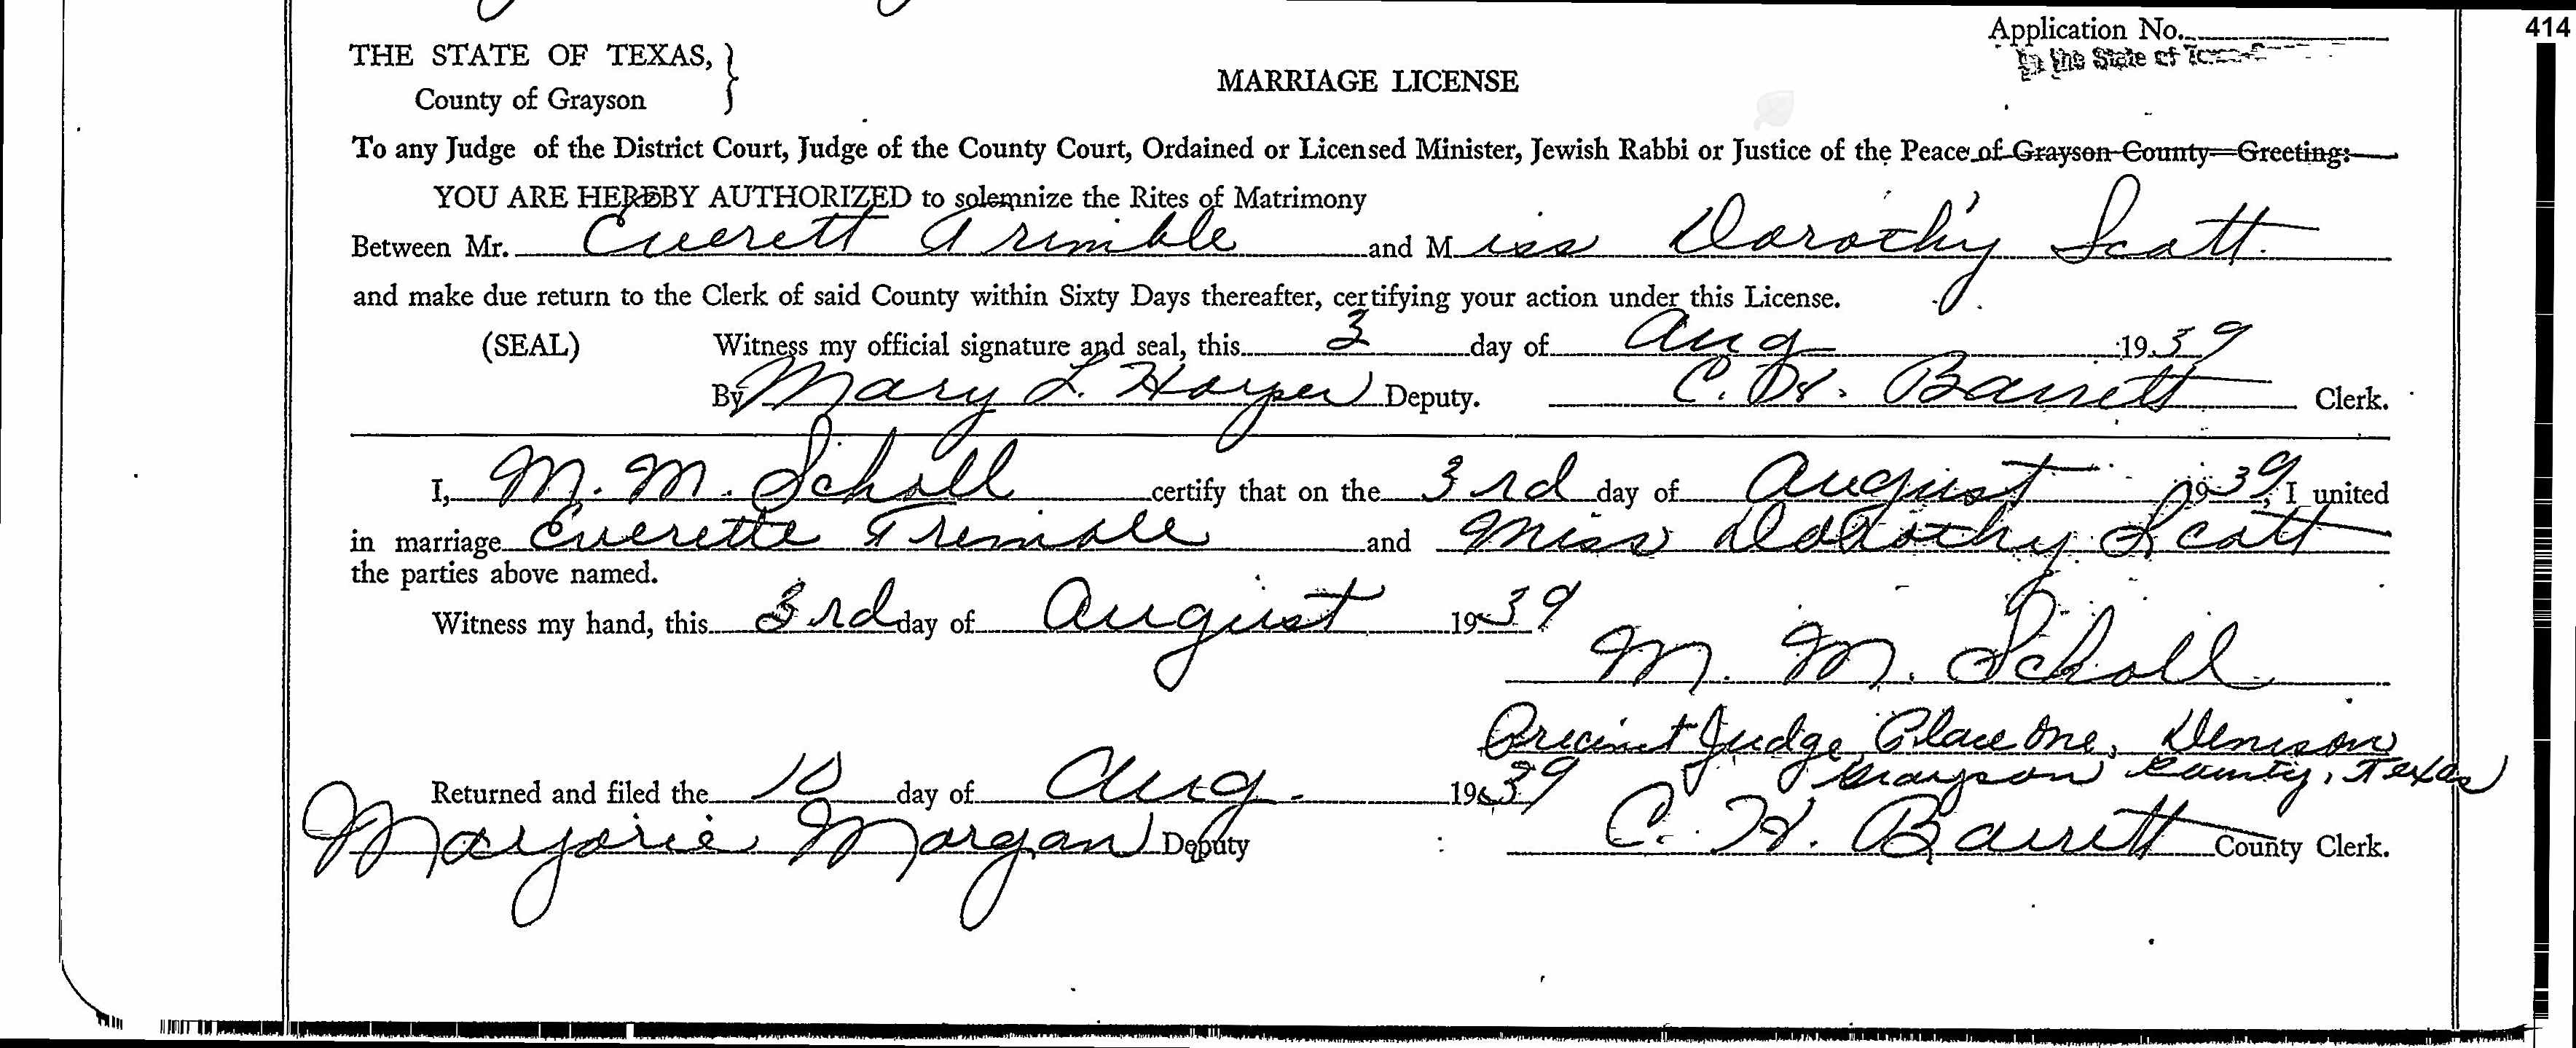 Application No.
414
THE STATE OF TEXAS, }
in the State of Texas
County of Grayson
MARRIAGE LICENSE
To any Judge of the District Court, Judge of the County Court, Ordained or Licensed Minister, Jewish Rabbi or Justice of the Peace of Grayson County—Greeting:
YOU ARE HEREBY AUTHORIZED to solemnize the Rites of Matrimony
Between Mr. Everett Trimble and Miss Dorothy Scott
and make due return to the Clerk of said County within Sixty Days thereafter, certifying your action under this License.
(SEAL) Witness my official signature and seal, this 3 day of Aug 1939
By Mary L. Harper Deputy. C. H. Barrett Clerk.
I, M. M. Scholl certify that on the 3rd day of August 1939, I united
in marriage Everette Trimble and Miss Dorothy Scott
the parties above named.
Witness my hand, this 3rd day of August 1939
M. M. Scholl
Precinct Judge Place One, Denison
Grayson County, Texas
Returned and filed the 10 day of Aug. 1939
Marjorie Morgan Deputy C. H. Barrett County Clerk.